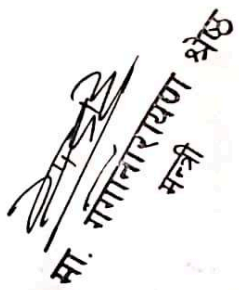 मा. गंगानारायण श्रेष्ठ
मन्त्री